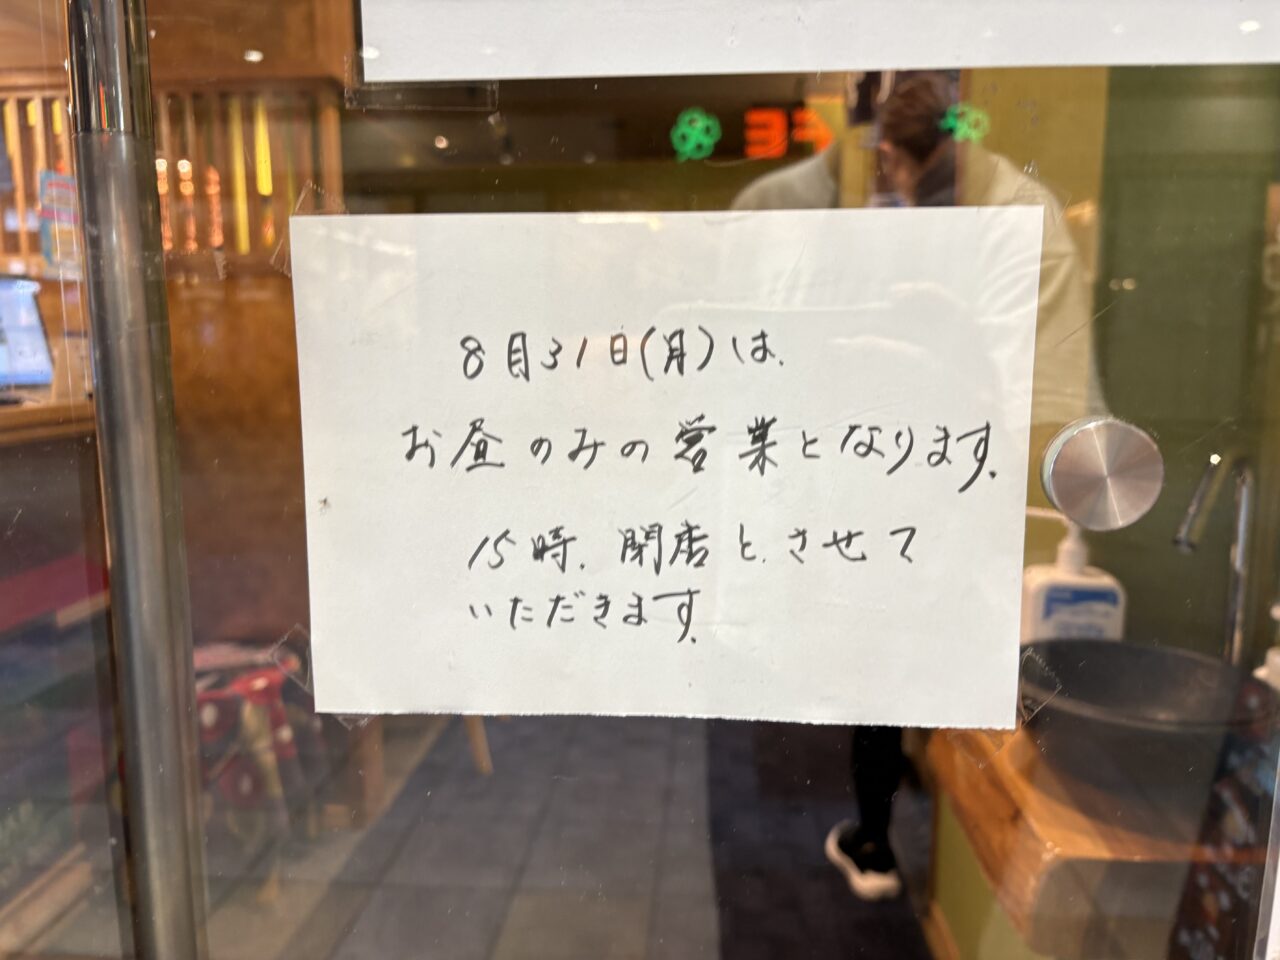 8月31日(月)は、
お昼のみの営業となります。
15時、閉店とさせて
いただきます。